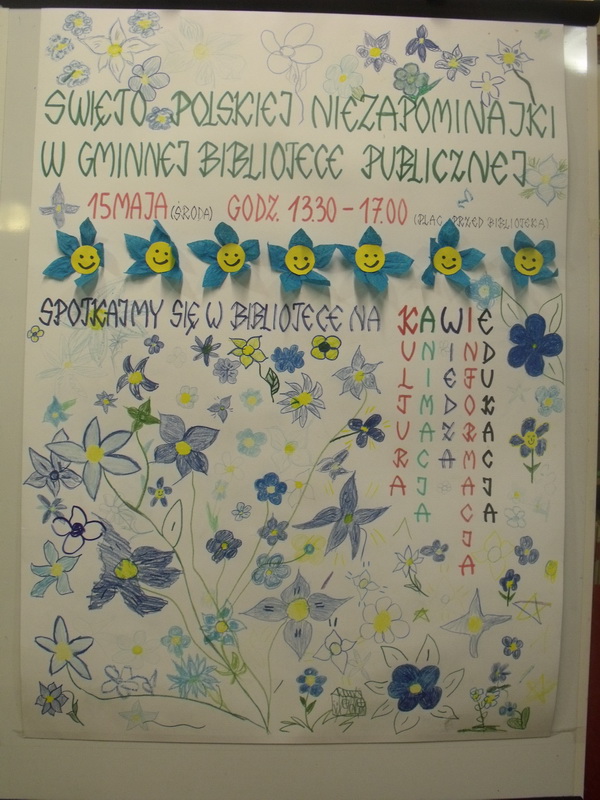 ŚWIĘTO POLSKIEJ NIEZAPOMINAJKI
W GMINNEJ BIBLIOTECE PUBLICZNEJ
15 MAJA (ŚRODA) GODZ. 13.30 - 17.00 (PLAC PRZED BIBLIOTEKĄ)
SPOTKAJMY SIĘ W BIBLIOTECE NA KAWIE
KULTURA
ANIMACJA
WIEDZA
INFORMACJA
EDUKACJA